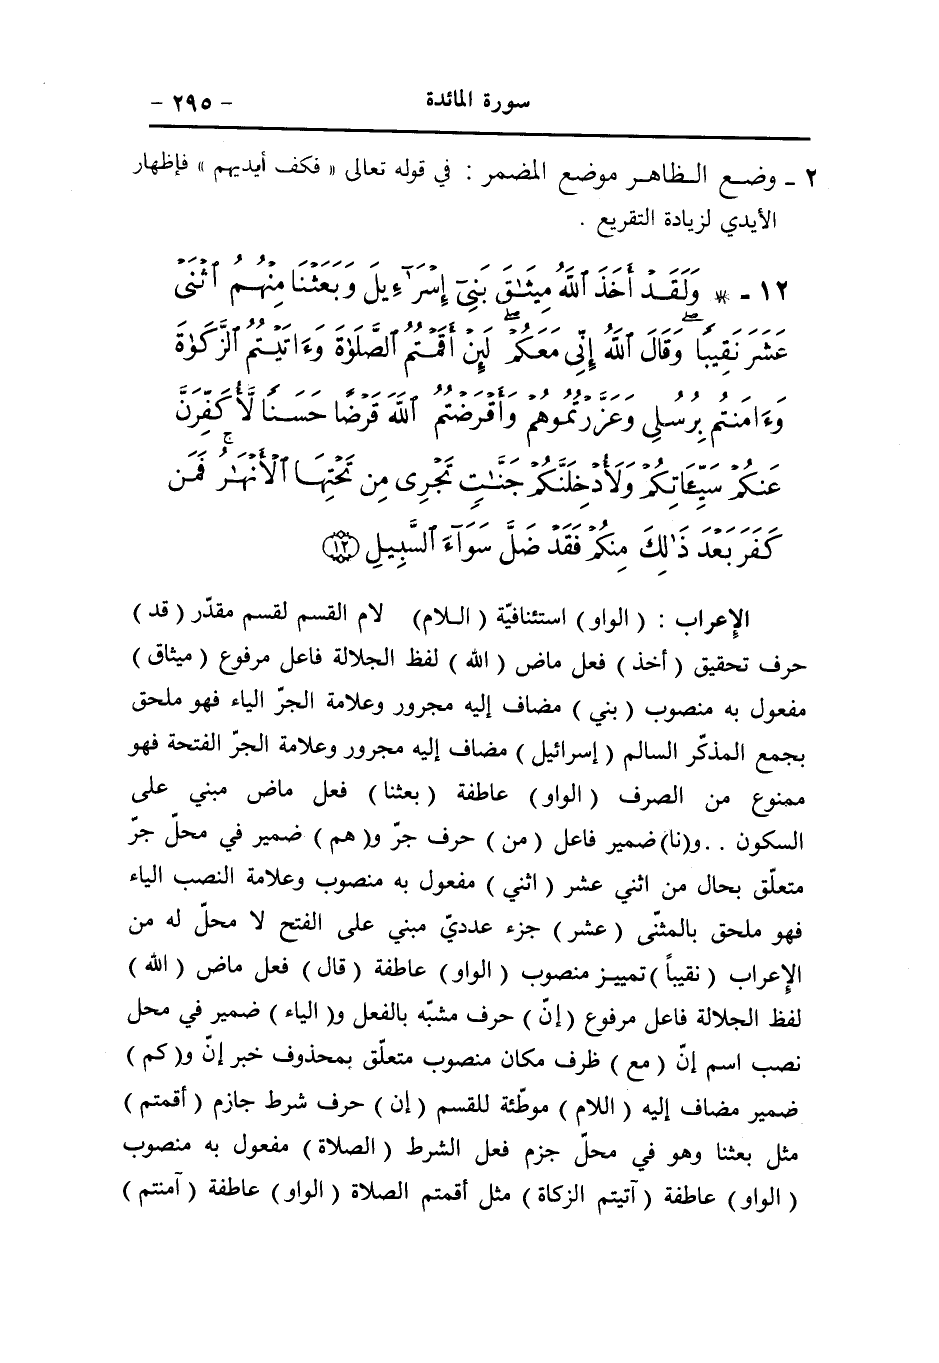 سورة المائدة - ٢٩٥ -
٢ - وضـع الـظاهـر موضع المضمر : في قوله تعالى « فكف أيديهم » فإظهار
الأيدي لزيادة التقريع .
١٢ - * وَلَقَدْ أَخَذَ ٱللَّهُ مِيثَـٰقَ بَنِىٓ إِسْرَٰٓءِيلَ وَبَعَثْنَا مِنْهُمُ ٱثْنَىْ
عَشَرَ نَقِيبًا ۖ وَقَالَ ٱللَّهُ إِنِّى مَعَكُمْ ۖ لَئِنْ أَقَمْتُمُ ٱلصَّلَوٰةَ وَءَاتَيْتُمُ ٱلزَّكَوٰةَ
وَءَامَنتُم بِرُسُلِى وَعَزَّرْتُمُوهُمْ وَأَقْرَضْتُمُ ٱللَّهَ قَرْضًا حَسَنًا لَّأُكَفِّرَنَّ
عَنكُمْ سَيِّـَٔاتِكُمْ وَلَأُدْخِلَنَّكُمْ جَنَّـٰتٍ تَجْرِى مِن تَحْتِهَا ٱلْأَنْهَـٰرُ ۚ فَمَن
كَفَرَ بَعْدَ ذَٰلِكَ مِنكُمْ فَقَدْ ضَلَّ سَوَآءَ ٱلسَّبِيلِ (١٢)
الإعراب : ( الواو ) استئنافيّة ( الـلام ) لام القسم لقسم مقدّر ( قد )
حرف تحقيق ( أخذ ) فعل ماض ( الله ) لفظ الجلالة فاعل مرفوع ( ميثاق )
مفعول به منصوب ( بني ) مضاف إليه مجرور وعلامة الجرّ الياء فهو ملحق
بجمع المذكّر السالم ( إسرائيل ) مضاف إليه مجرور وعلامة الجرّ الفتحة فهو
ممنوع من الصرف ( الواو ) عاطفة ( بعثنا ) فعل ماض مبني على
السكون . . و(نا) ضمير فاعل ( من ) حرف جرّ و( هم ) ضمير في محلّ جرّ
متعلّق بحال من اثني عشر ( اثني ) مفعول به منصوب وعلامة النصب الياء
فهو ملحق بالمثنّى ( عشر ) جزء عدديّ مبني على الفتح لا محلّ له من
الإعراب ( نقيباً ) تمييـز منصوب ( الواو ) عاطفة ( قال ) فعل ماض ( الله )
لفظ الجلالة فاعل مرفوع ( إنّ ) حرف مشبّه بالفعل و( الياء ) ضمير في محل
نصب اسم إنّ ( مع ) ظرف مكان منصوب متعلّق بمحذوف خبر إنّ و( كم )
ضمير مضاف إليه ( اللام ) موطّئة للقسم ( إن ) حرف شرط جازم ( أقمتم )
مثل بعثنا وهو في محلّ جزم فعل الشرط ( الصلاة ) مفعول به منصوب
( الواو ) عاطفة ( آتيتم الزكاة ) مثل أقمتم الصلاة ( الواو ) عاطفة ( آمنتم )